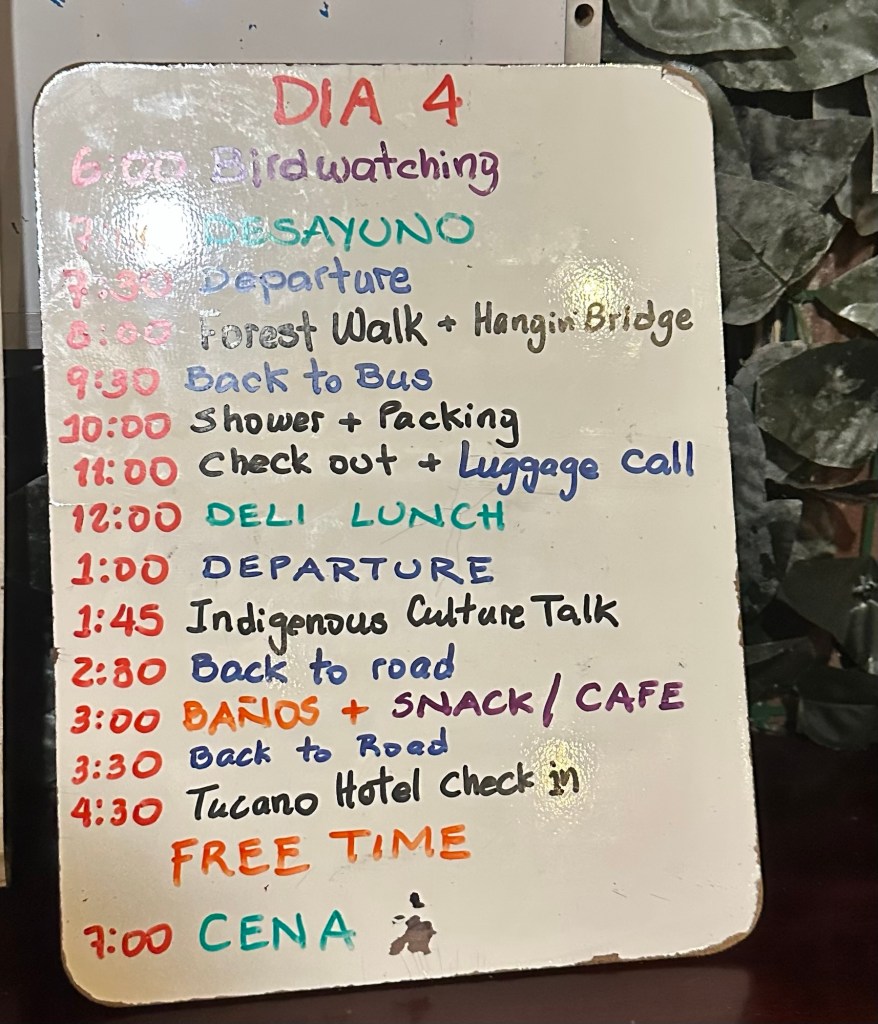 DIA 4
6:00 Birdwatching
DESAYUNO
7:30 Departure
8:00 Forest Walk + Hangin' Bridge
9:30 Back to Bus
10:00 Shower + Packing
11:00 Check out + Luggage Call
12:00 DELI LUNCH
1:00 DEPARTURE
1:45 Indigenous Culture Talk
2:30 Back to road
3:00 BAÑOS + SNACK / CAFE
3:30 Back to Road
4:30 Tucano Hotel Check in
FREE TIME
7:00 CENA